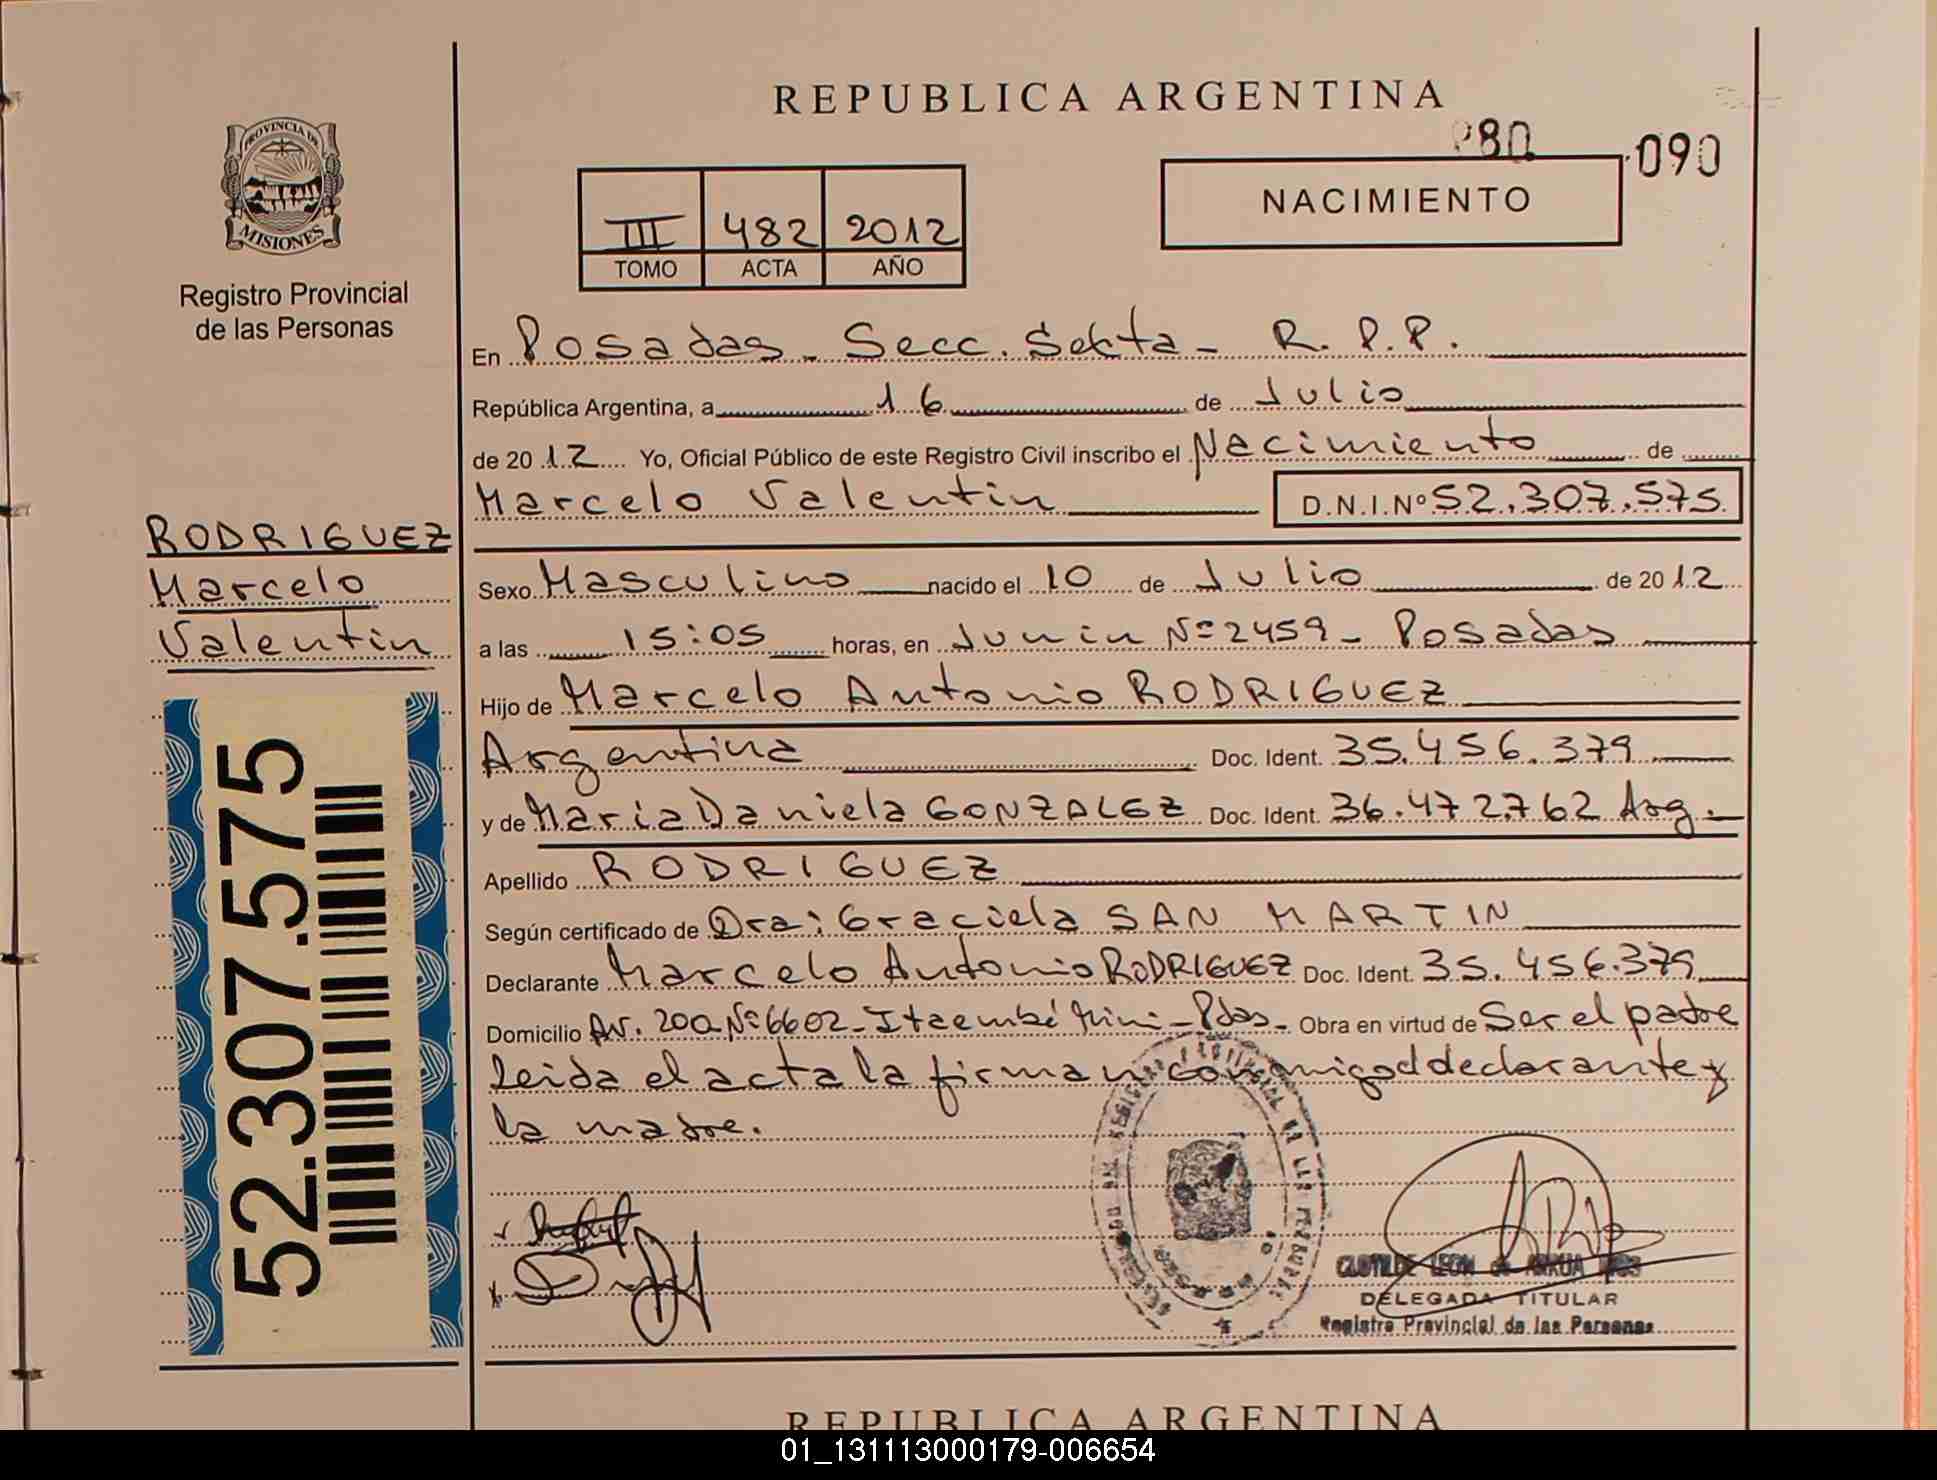 REPUBLICA ARGENTINA
80
090
PROVINCIA DE
MISIONES
Registro Provincial
de las Personas
III 482 2012
TOMO ACTA AÑO
NACIMIENTO
En Posadas - Secc. Sexta - R. P. P.
República Argentina, a 16 de Julio
de 2012 Yo, Oficial Público de este Registro Civil inscribo el Nacimiento de
Marcelo Valentin D.N.I.Nº 52.307.575
RODRIGUEZ
Marcelo
Valentin
52.307.575
Sexo Masculino nacido el 10 de Julio de 2012
a las 15:05 horas, en Junin Nº 2459 - Posadas
Hijo de Marcelo Antonio RODRIGUEZ
Argentina Doc. Ident. 35.456.379
y de Maria Daniela GONZALEZ Doc. Ident. 36.472.762 Arg.
Apellido RODRIGUEZ
Según certificado de Dra: Graciela SAN MARTIN
Declarante Marcelo Antonio RODRIGUEZ Doc. Ident. 35.456.379
Domicilio Av. 200 Nº 6602 - Itaembé Mini - Pdas - Obra en virtud de Ser el padre
Leida el acta la firman conmigo el declarante y
la madre.
CLOTILDE LEON de
DELEGADA TITULAR
Registro Provincial de las Personas
REPUBLICA ARGENTINA
01_131113000179-006654